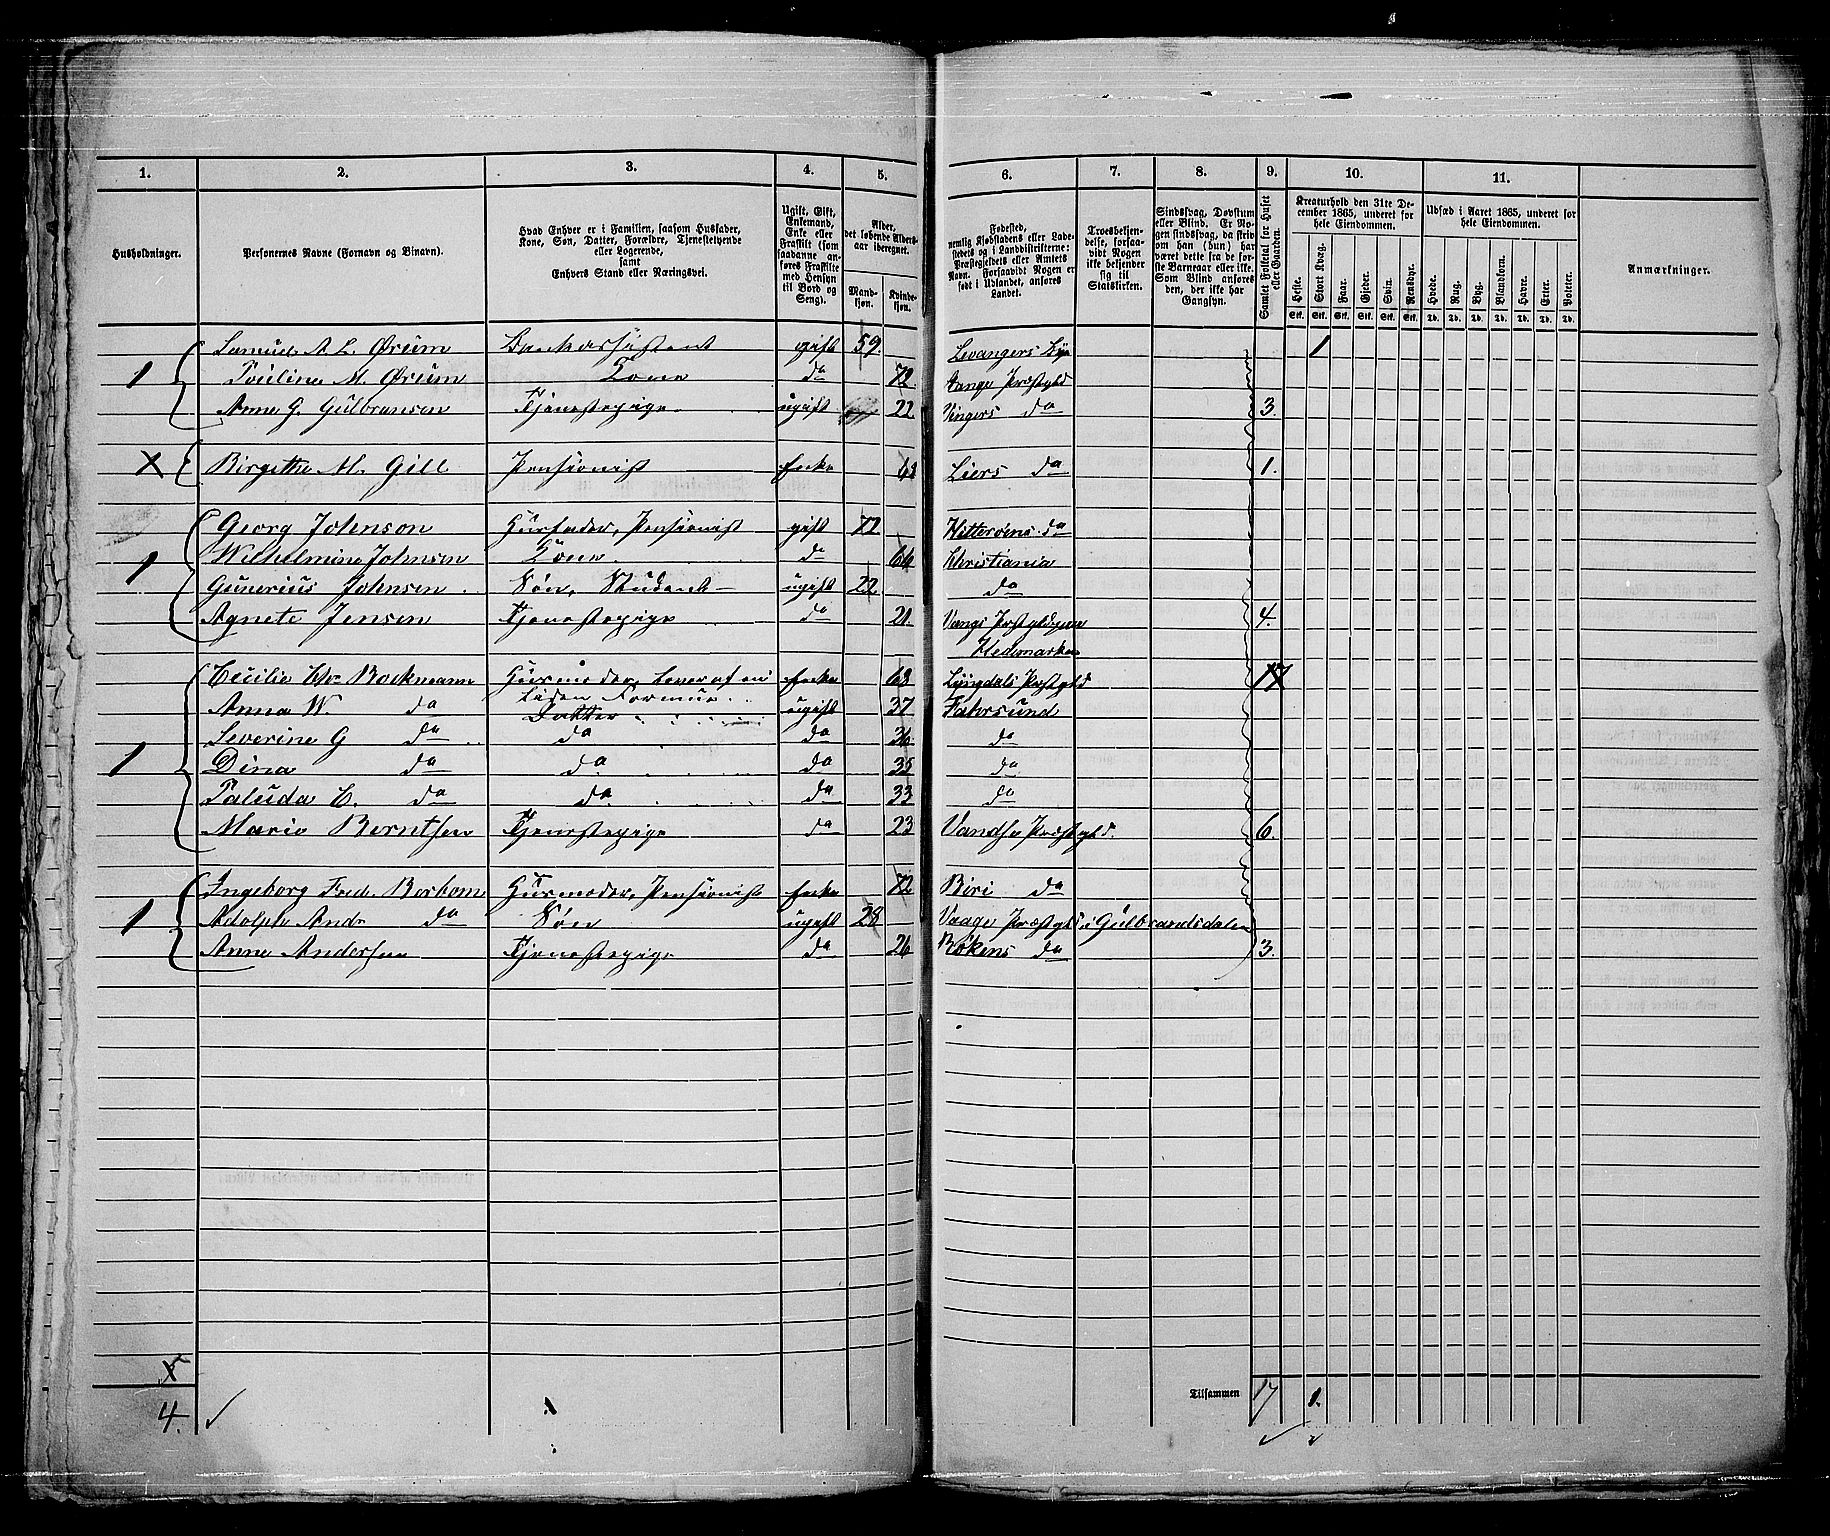 1. 2. 3. 4. 5. 6. 7. 8. 9. 10. 11.
Husholdninger.
Personernes Navne (Fornavn og Binavn).
Hvad Enhver er i Familien, saasom Husfader, Kone, Søn, Datter, Forældre, Tjenestetyende eller Logerende, samt Enhvers Stand eller Næringsvei.
Ugift, Gift, Enkemand, Enke eller Fraskilt (som saadanne anføres Fraskilte med Hensyn til Bord og Seng).
Alder, det løbende Alders-aar iberegnet.
Mand-kjøn. Kvinde-kjøn.
Fødested, nemlig Kjøbstadens eller Lade-stedets og i Landdistrikterne: Præstegjeldets eller Amtets Navn. Forsaavidt Nogen er født i Udlandet, anføres Landet.
Troesbekjen-delse, forsaa-vidt Nogen ikke bekjender sig til Statskirken.
Sindssvag, Døvstum eller Blind. Er No-gen sindssvag, da skriv om han (hun) har været dette fra de før-ste Barneaar eller ikke. Som Blind anføres den, der ikke har Gangsyn.
Samlet Folketal for Huset eller Gaarden.
Kreaturhold den 31te De-cember 1865, underet for hele Eiendommen.
Heste. Stort Kvæg. Faar. Gjeder. Svin. Rensdyr.
Stk. Stk. Stk. Stk. Stk. Stk.
Udsæd i Aaret 1865, underet for hele Eiendommen.
Hvede. Rug. Byg. Blandkorn. Havre. Erter. Poteter.
Td. Td. Td. Td. Td. Td. Td.
Anmærkninger.
Samuel A L. Ørum Bankassistent gift 59. Levangers By 1
1 Pouline M. Ørum Kone do 72. Stange Præstgld
Anne G. Gulbransen Tjenestepige ugift 22 Vingers do 3.
X Birgithe M. Gill Pensionist Enke 62 Liers do 1.
Georg Johnson Husfader, Pensionist gift 72 Hitterøens do
Wilhelmine Johnsen Kone do 66 Christiania
1 Gunerius Johnsen Søn, Student ugift 22 do
Agnete Jensen Tjenestepige do 21. Vangs Prstgld paa 4.
Hedemarken
Cecilie Bockmann Husmoder, lever af en Enke 68 Lyngdals Prstgld
liden Formue
Anna W. do Datter ugift 37 Fahrsund
Severine G do do do 36 do
1 Dina do do do 35 do
Paluda C. do do do 33 do
Marie Berntsen Tjenestepige do 23 Vandsø Præstgld. 6.
Ingeborg Fred. Borhom Husmoder, Pensionist Enke 72 Biri do
1 Adolph Andr do Søn ugift 28 Vaage Præstgld i Gulbrandsdalen
Anne Andersen Tjenestepige do 26 Røkens do 3.
5
4.
Tilsammen 17 1.